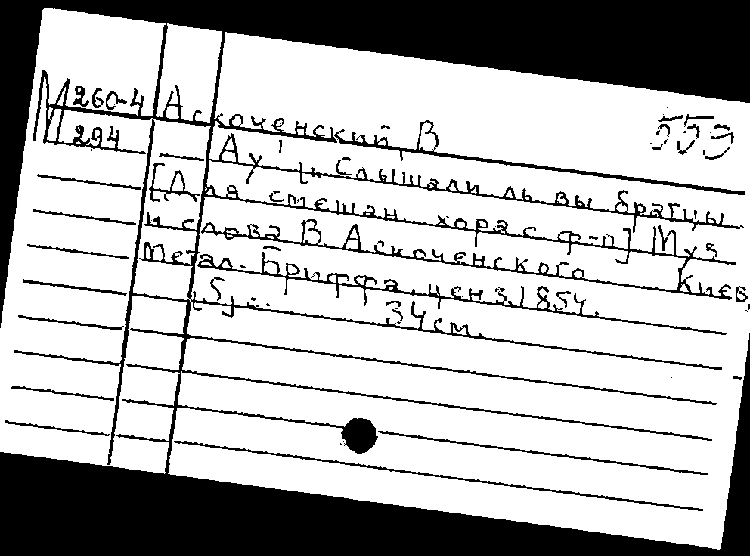 М 260-4 Аскоченский, В 559
294 Ау! [... Слышали ль вы братцы
[Для смешан. хора с ф-п] Муз
и слова В. Аскоченского Киев,
метал. Бриффа, ценз. 1854.
[5] с. 34 см.